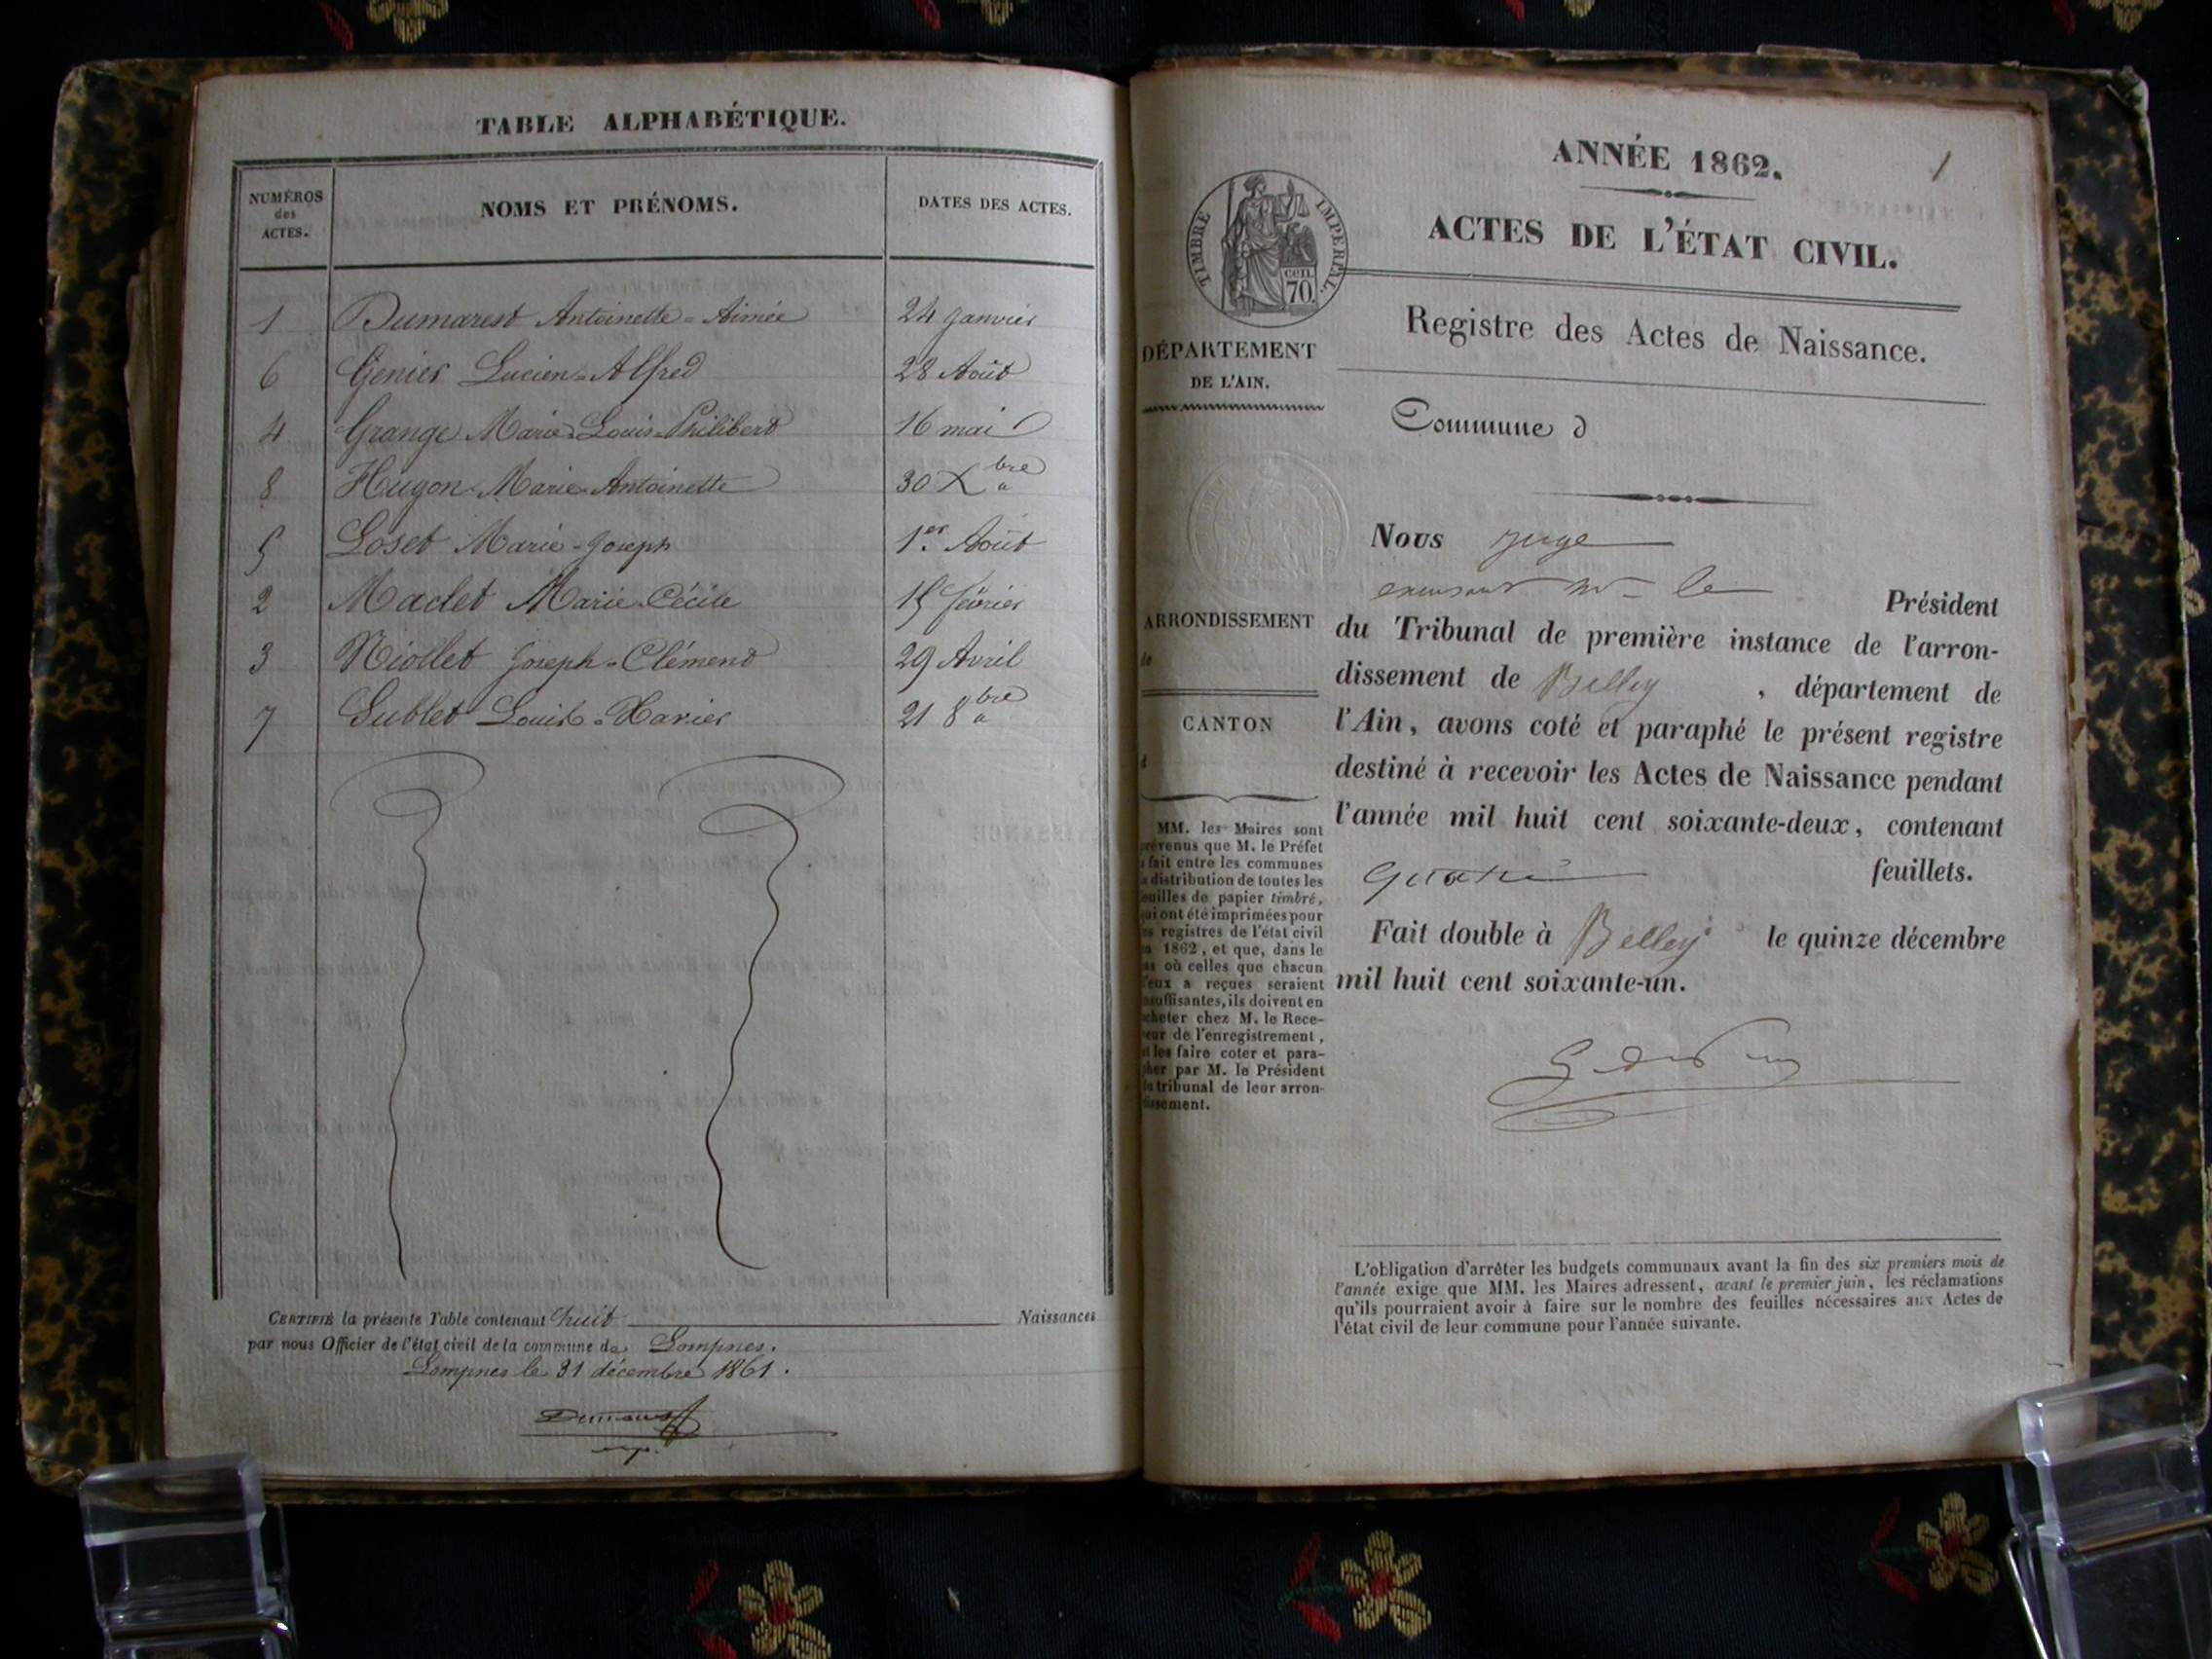 TABLE ALPHABÉTIQUE.
NUMÉROS
des
ACTES.
NOMS ET PRÉNOMS.
DATES DES ACTES.
1 Dumarest Antoinette-Aimée 24 Janvier
6 Genier Lucien-Alfred 28 Août
4 Grange Marie-Louis-Philibert 16 mai
8 Hugon Marie-Antoinette 30 Xbre
5 Loset Marie-Joseph 1er Août
2 Maclet Marie-Cécile 15 février
3 Niollet Joseph-Clément 29 Avril
7 Sublet Louis-Xavier 21 8bre
CERTIFIÉ la présente Table contenant huit Naissances
par nous Officier de l'état civil de la commune de Lompnes.
Lompnes le 31 décembre 1861.
Dumarest
ANNÉE 1862.
1
ACTES DE L'ÉTAT CIVIL.
TIMBRE IMPERIAL.
cen.
70.
Registre des Actes de Naissance.
DÉPARTEMENT
DE L'AIN.
Commune d
ARRONDISSEMENT
de
CANTON
d
MM. les Maires sont
prévenus que M. le Préfet
a fait entre les communes
la distribution de toutes les
feuilles de papier timbré,
qui ont été imprimées pour
les registres de l'état civil
en 1862, et que, dans le
cas où celles que chacun
d'eux a reçues seraient
insuffisantes, ils doivent en
acheter chez M. le Rece-
veur de l'enregistrement,
et les faire coter et para-
pher par M. le Président
du tribunal de leur arron-
dissement.
Nous juge
excusant Mr le Président
du Tribunal de première instance de l'arron-
dissement de Belley , département de
l'Ain, avons coté et paraphé le présent registre
destiné à recevoir les Actes de Naissance pendant
l'année mil huit cent soixante-deux, contenant
quatre feuillets.
Fait double à Belley le quinze décembre
mil huit cent soixante-un.
L'obligation d'arrêter les budgets communaux avant la fin des six premiers mois de
l'année exige que MM. les Maires adressent, avant le premier juin, les réclamations
qu'ils pourraient avoir à faire sur le nombre des feuilles nécessaires aux Actes de
l'état civil de leur commune pour l'année suivante.